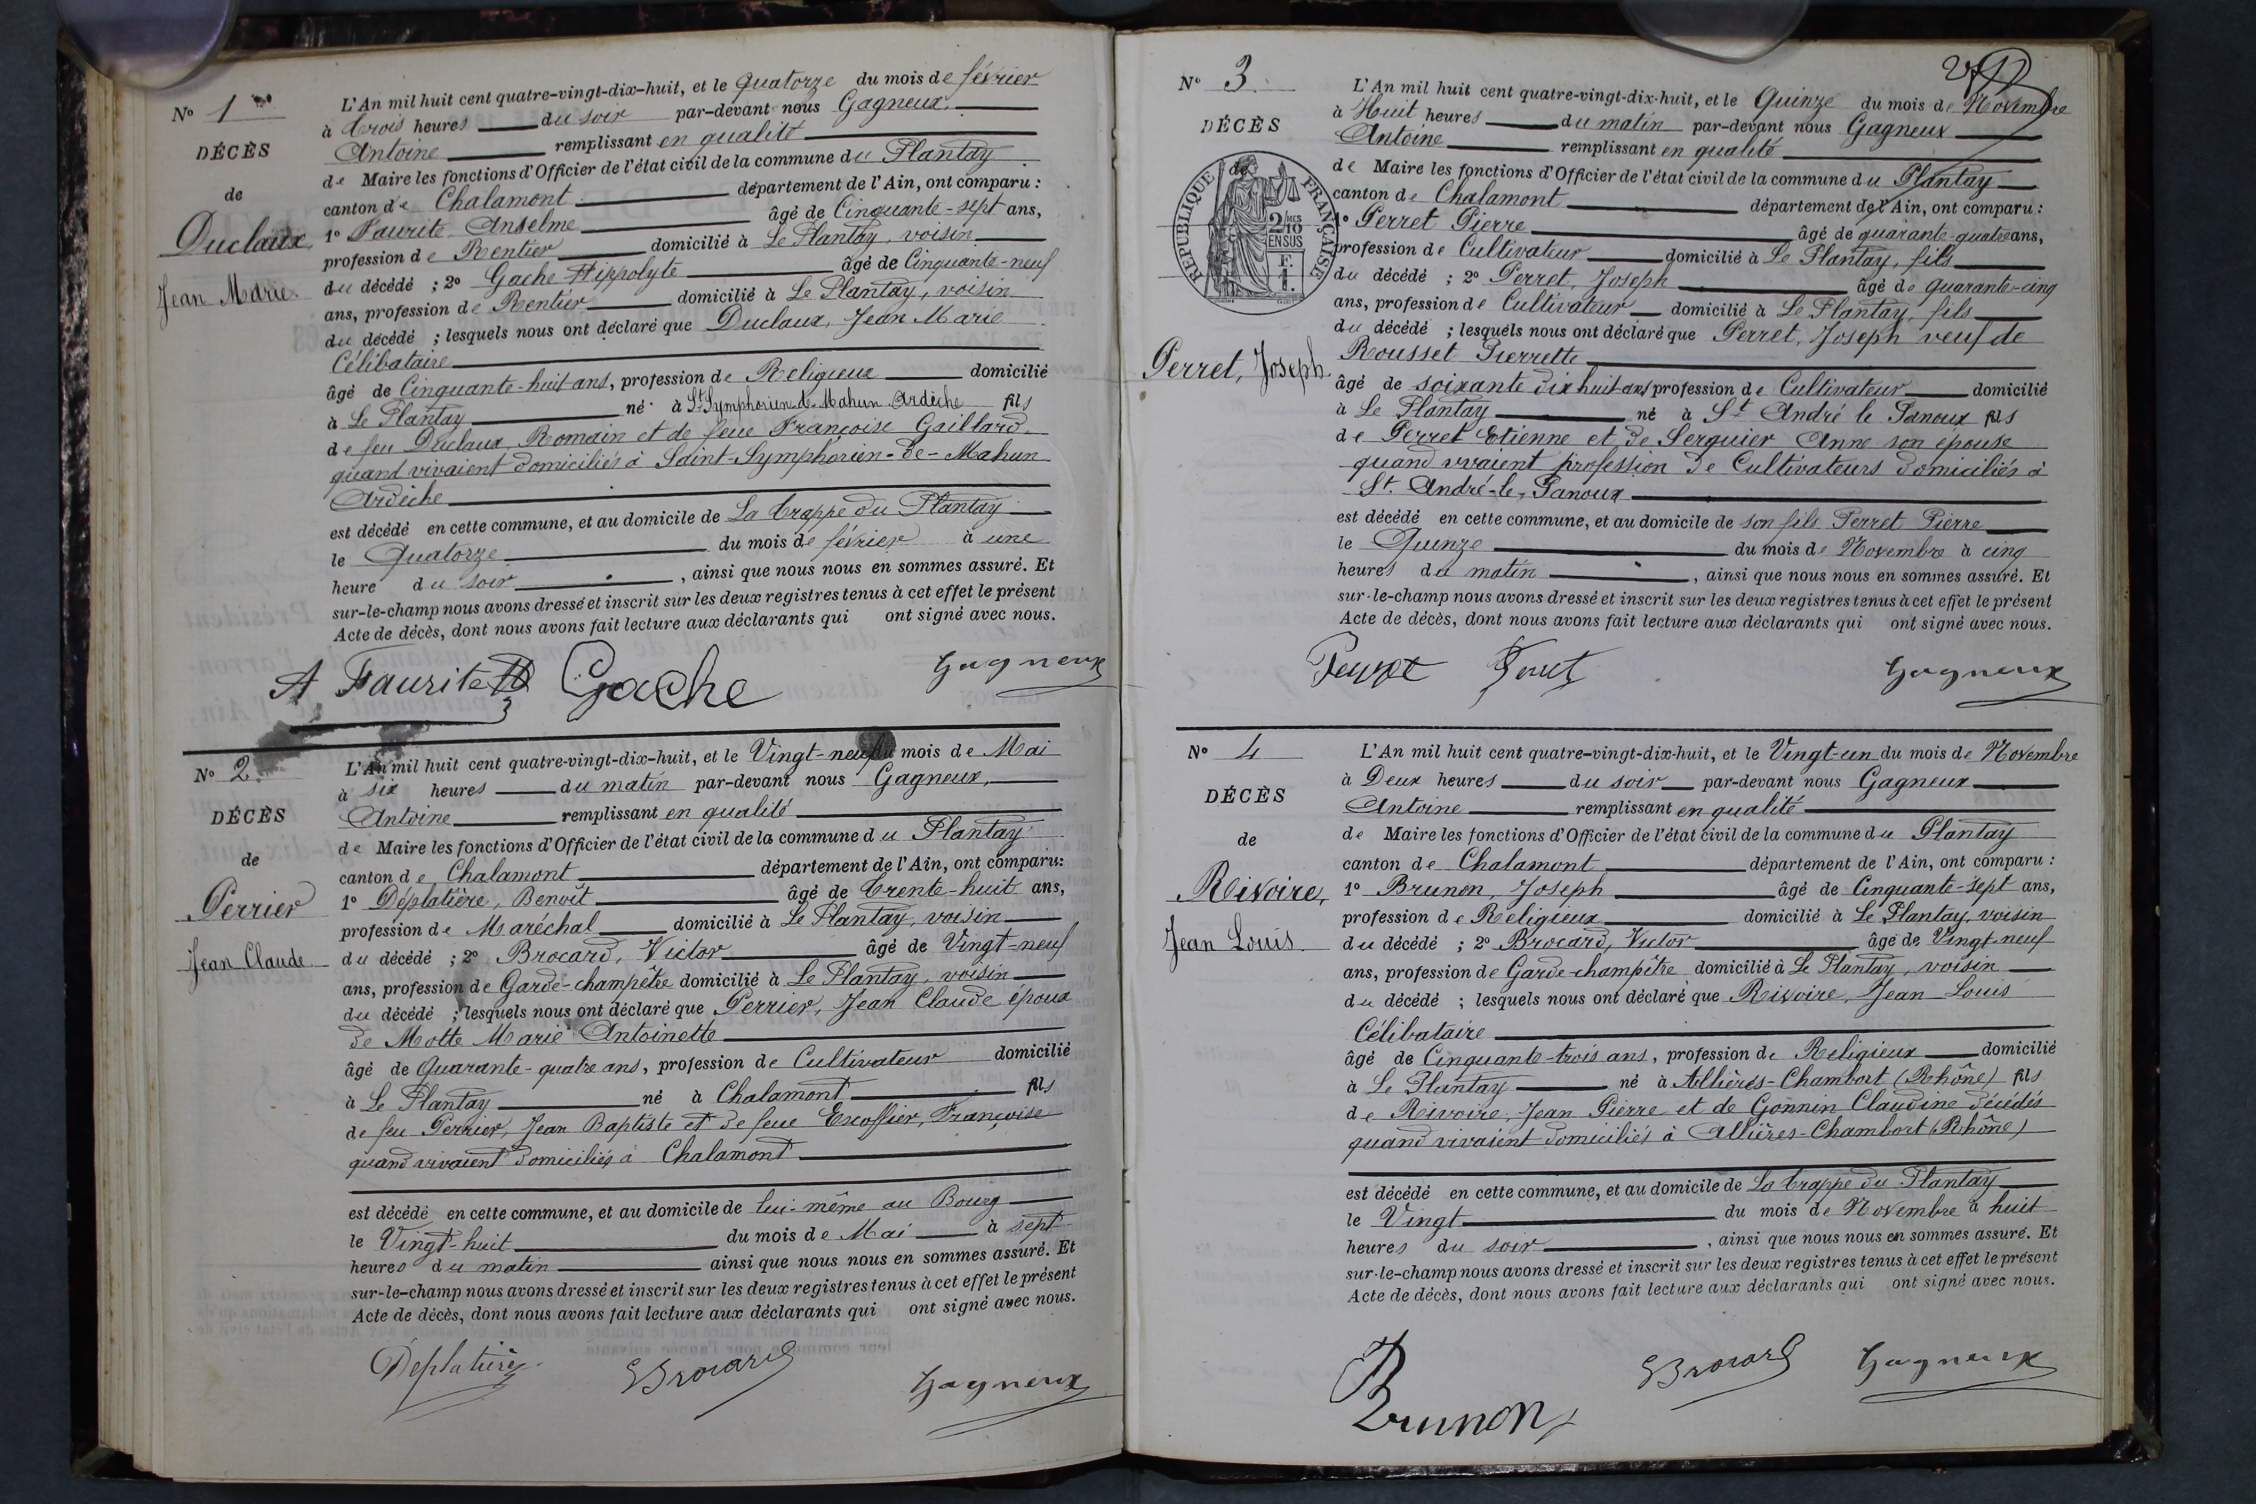 N° 1
DÉCÈS
de
Duclaux
Jean Marie
L'An mil huit cent quatre-vingt-dix-huit, et le quatorze du mois de février
à trois heures du soir par-devant nous Gagneux
Antoine remplissant en qualité
de Maire les fonctions d'Officier de l'état civil de la commune du Plantay
canton de Chalamont département de l'Ain, ont comparu :
1° Faurite Anselme âgé de Cinquante-sept ans,
profession de Rentier domicilié à Le Plantay, voisin
du décédé ; 2° Gache Hippolyte âgé de Cinquante-neuf
ans, profession de Rentier domicilié à Le Plantay, voisin
du décédé ; lesquels nous ont déclaré que Duclaux, Jean Marie
Célibataire
âgé de Cinquante-huit ans, profession de Religieux domicilié
à Le Plantay né à St Symphorien-de-Mahun Ardèche fils
de feu Duclaux, Romain et de feue Françoise Gaillard
quand vivaient domiciliés à Saint-Symphorien-de-Mahun
Ardèche
est décédé en cette commune, et au domicile de La Trappe du Plantay
le Quatorze du mois de février à une
heure du soir, ainsi que nous nous en sommes assuré. Et
sur-le-champ nous avons dressé et inscrit sur les deux registres tenus à cet effet le présent
Acte de décès, dont nous avons fait lecture aux déclarants qui ont signé avec nous.
A Faurite Gache Gagneux
N° 2
DÉCÈS
de
Perrier
Jean Claude
L'An mil huit cent quatre-vingt-dix-huit, et le Vingt-neuf du mois de Mai
à six heures du matin par-devant nous Gagneux,
Antoine remplissant en qualité
de Maire les fonctions d'Officier de l'état civil de la commune du Plantay
canton de Chalamont département de l'Ain, ont comparu :
1° Déplatière, Benoît âgé de Trente-huit ans,
profession de Maréchal domicilié à Le Plantay, voisin
du décédé ; 2° Brocard, Victor âgé de Vingt-neuf
ans, profession de Garde-champêtre domicilié à Le Plantay, voisin
du décédé ; lesquels nous ont déclaré que Perrier, Jean Claude époux
de Motte Marie Antoinette
âgé de Quarante-quatre ans, profession de Cultivateur domicilié
à Le Plantay né à Chalamont fils
de feu Perrier, Jean Baptiste et de feue Escoffier, Françoise
quand vivaient domiciliés à Chalamont
est décédé en cette commune, et au domicile de lui-même au Bourg
le Vingt-huit du mois de Mai à sept
heures du matin ainsi que nous nous en sommes assuré. Et
sur-le-champ nous avons dressé et inscrit sur les deux registres tenus à cet effet le présent
Acte de décès, dont nous avons fait lecture aux déclarants qui ont signé avec nous.
Déplatière Brocard Gagneux
N° 3
DÉCÈS
de
RÉPUBLIQUE FRANÇAISE
2/10
EN SUS
F.
1.
Perret, Joseph
L'An mil huit cent quatre-vingt-dix-huit, et le Quinze du mois de Novembre
à Huit heures du matin par-devant nous Gagneux
Antoine remplissant en qualité
de Maire les fonctions d'Officier de l'état civil de la commune du Plantay
canton de Chalamont département de l'Ain, ont comparu :
1° Perret Pierre âgé de quarante-quatre ans,
profession de Cultivateur domicilié à Le Plantay, fils
du décédé ; 2° Perret, Joseph âgé de quarante-cinq
ans, profession de Cultivateur domicilié à Le Plantay fils
du décédé ; lesquels nous ont déclaré que Perret, Joseph veuf de
Rousset Pierrette
âgé de soixante dix huit ans profession de Cultivateur domicilié
à Le Plantay né à St André le Panoux fils
de Perret Etienne et de Serguier Anne son épouse
quand vivaient profession de Cultivateurs domiciliés à
St. André-le-Panoux
est décédé en cette commune, et au domicile de son fils Perret Pierre
le Quinze du mois de Novembre à cinq
heures du matin, ainsi que nous nous en sommes assuré. Et
sur-le-champ nous avons dressé et inscrit sur les deux registres tenus à cet effet le présent
Acte de décès, dont nous avons fait lecture aux déclarants qui ont signé avec nous.
Gagneux
N° 4
DÉCÈS
de
Rivoire,
Jean Louis
L'An mil huit cent quatre-vingt-dix-huit, et le Vingt-un du mois de Novembre
à Deux heures du soir par-devant nous Gagneux
Antoine remplissant en qualité
de Maire les fonctions d'Officier de l'état civil de la commune du Plantay
canton de Chalamont département de l'Ain, ont comparu :
1° Brunon, Joseph âgé de Cinquante-sept ans,
profession de Religieux domicilié à Le Plantay, voisin
du décédé ; 2° Brocard, Victor âgé de Vingt-neuf
ans, profession de Garde-champêtre domicilié à Le Plantay, voisin
du décédé ; lesquels nous ont déclaré que Rivoire, Jean Louis
Célibataire
âgé de Cinquante-trois ans, profession de Religieux domicilié
à Le Plantay né à Allières-Chambort (Rhône) fils
de Rivoire, Jean Pierre et de Gonnin Claudine décédés
quand vivaient domiciliés à Allières-Chambort (Rhône)
est décédé en cette commune, et au domicile de La Trappe du Plantay
le Vingt du mois de Novembre à huit
heures du soir, ainsi que nous nous en sommes assuré. Et
sur-le-champ nous avons dressé et inscrit sur les deux registres tenus à cet effet le présent
Acte de décès, dont nous avons fait lecture aux déclarants qui ont signé avec nous.
Brunon Brocard Gagneux